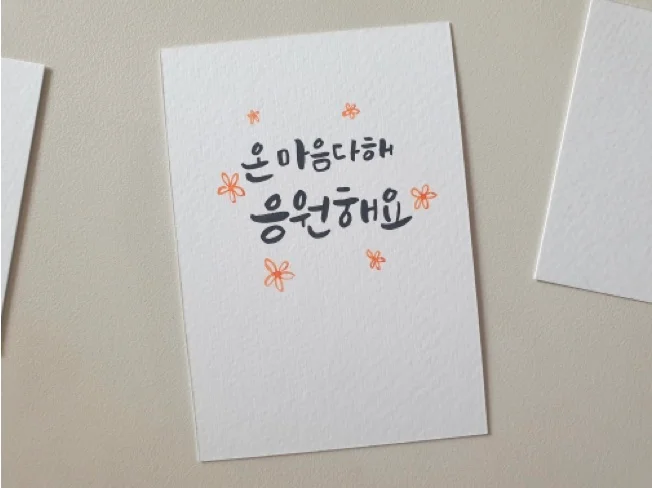 온 마음다해
응원해요